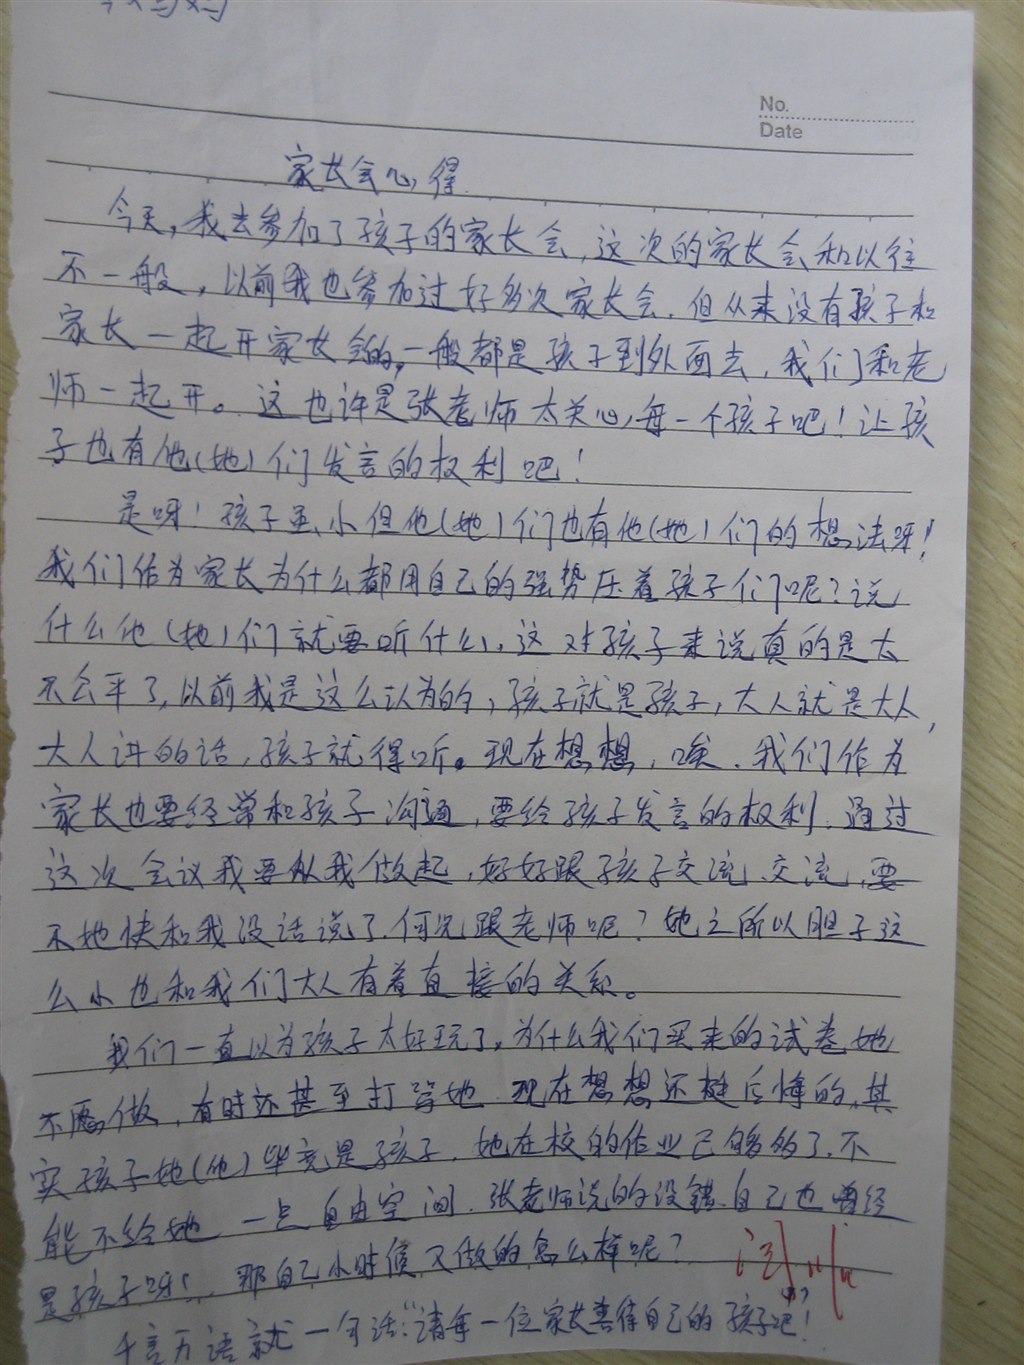 妈妈
No.
Date
家长会心得
今天，我去参加了孩子的家长会，这次的家长会和以往
不一般，以前我也参加过好多次家长会．但从来没有孩子和
家长一起开家长会的，一般都是孩子到外面去，我们和老
师一起开。这也许是张老师太关心每一个孩子吧！让孩
子也有他(她)们发言的权利吧！
是呀！孩子虽小但他(她)们也有他(她)们的想法呀！
我们作为家长为什么都用自己的强势压着孩子们呢？说
什么他(她)们就要听什么，这对孩子来说真的是太
不公平了，以前我是这么认为的，孩子就是孩子，大人就是大人，
大人讲的话，孩子就得听。现在想想，唉．我们作为
家长也要经常和孩子沟通，要给孩子发言的权利．通过
这次会议我要从我做起，好好跟孩子交流．交流，要
不她快和我没话说了．何况跟老师呢？她之所以胆子这
么小也和我们大人有着直接的关系。
我们一直以为孩子太好玩了，为什么我们买来的试卷她
不愿做，有时还甚至打骂她．现在想想还挺后悔的，其
实孩子她(他)毕竟是孩子．她在校的作业已够多了．不
能不给她一点自由空间．张老师说的没错．自己也曾经
是孩子呀！．那自己小时候又做的怎么样呢？
千言万语就一句话：“请每一位家长善待自己的孩子吧！”